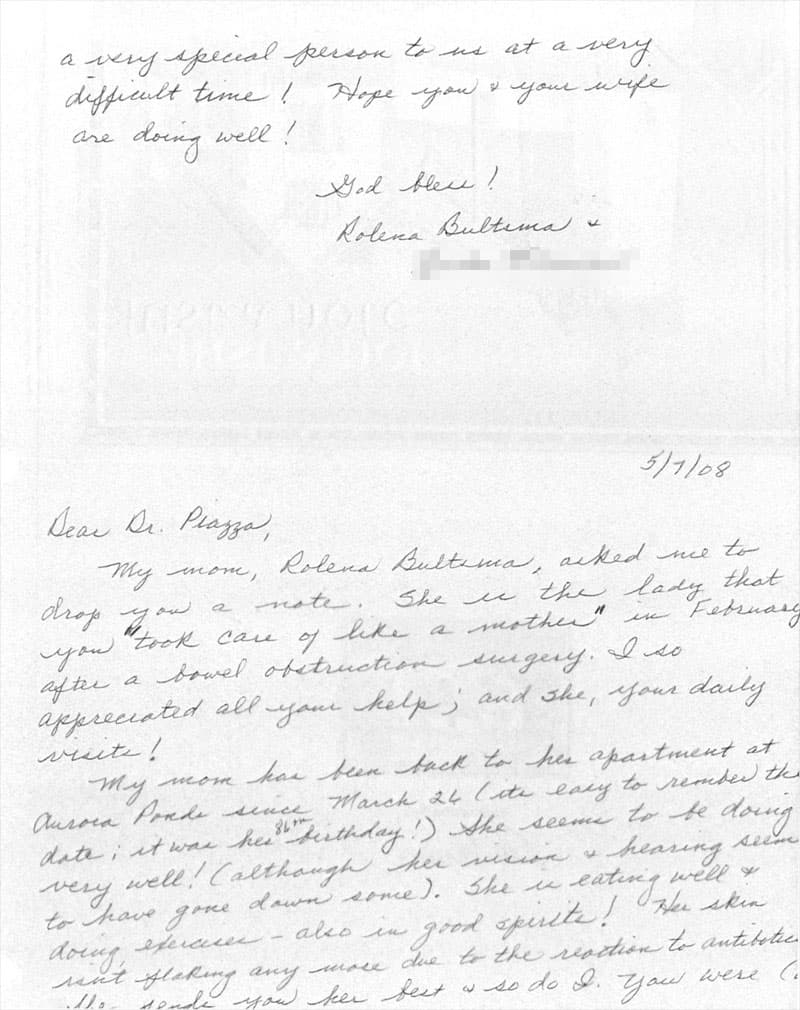 a very special person to us at a very
difficult time! Hope you & your wife
are doing well!
God bless!
Rolena Bultsma &
5/7/08
Dear Dr. Piazza,
My mom, Rolena Bultsma, asked me to
drop you a note. She is the lady that
you "took care of like a mother" in February
after a bowel obstruction surgery. I so
appreciated all your help; and she, your daily
visits!
My mom has been back to her apartment at
Aurora Ponds since March 26 (its easy to rember the
date; it was her 86th birthday!) She seems to be doing
very well! (although her vision & hearing seem
to have gone down some). She is eating well &
doing exercises - also in good spirits! Her skin
isn't flaking any more due to the reaction to antibiotics
sends you her best & so do I. You were